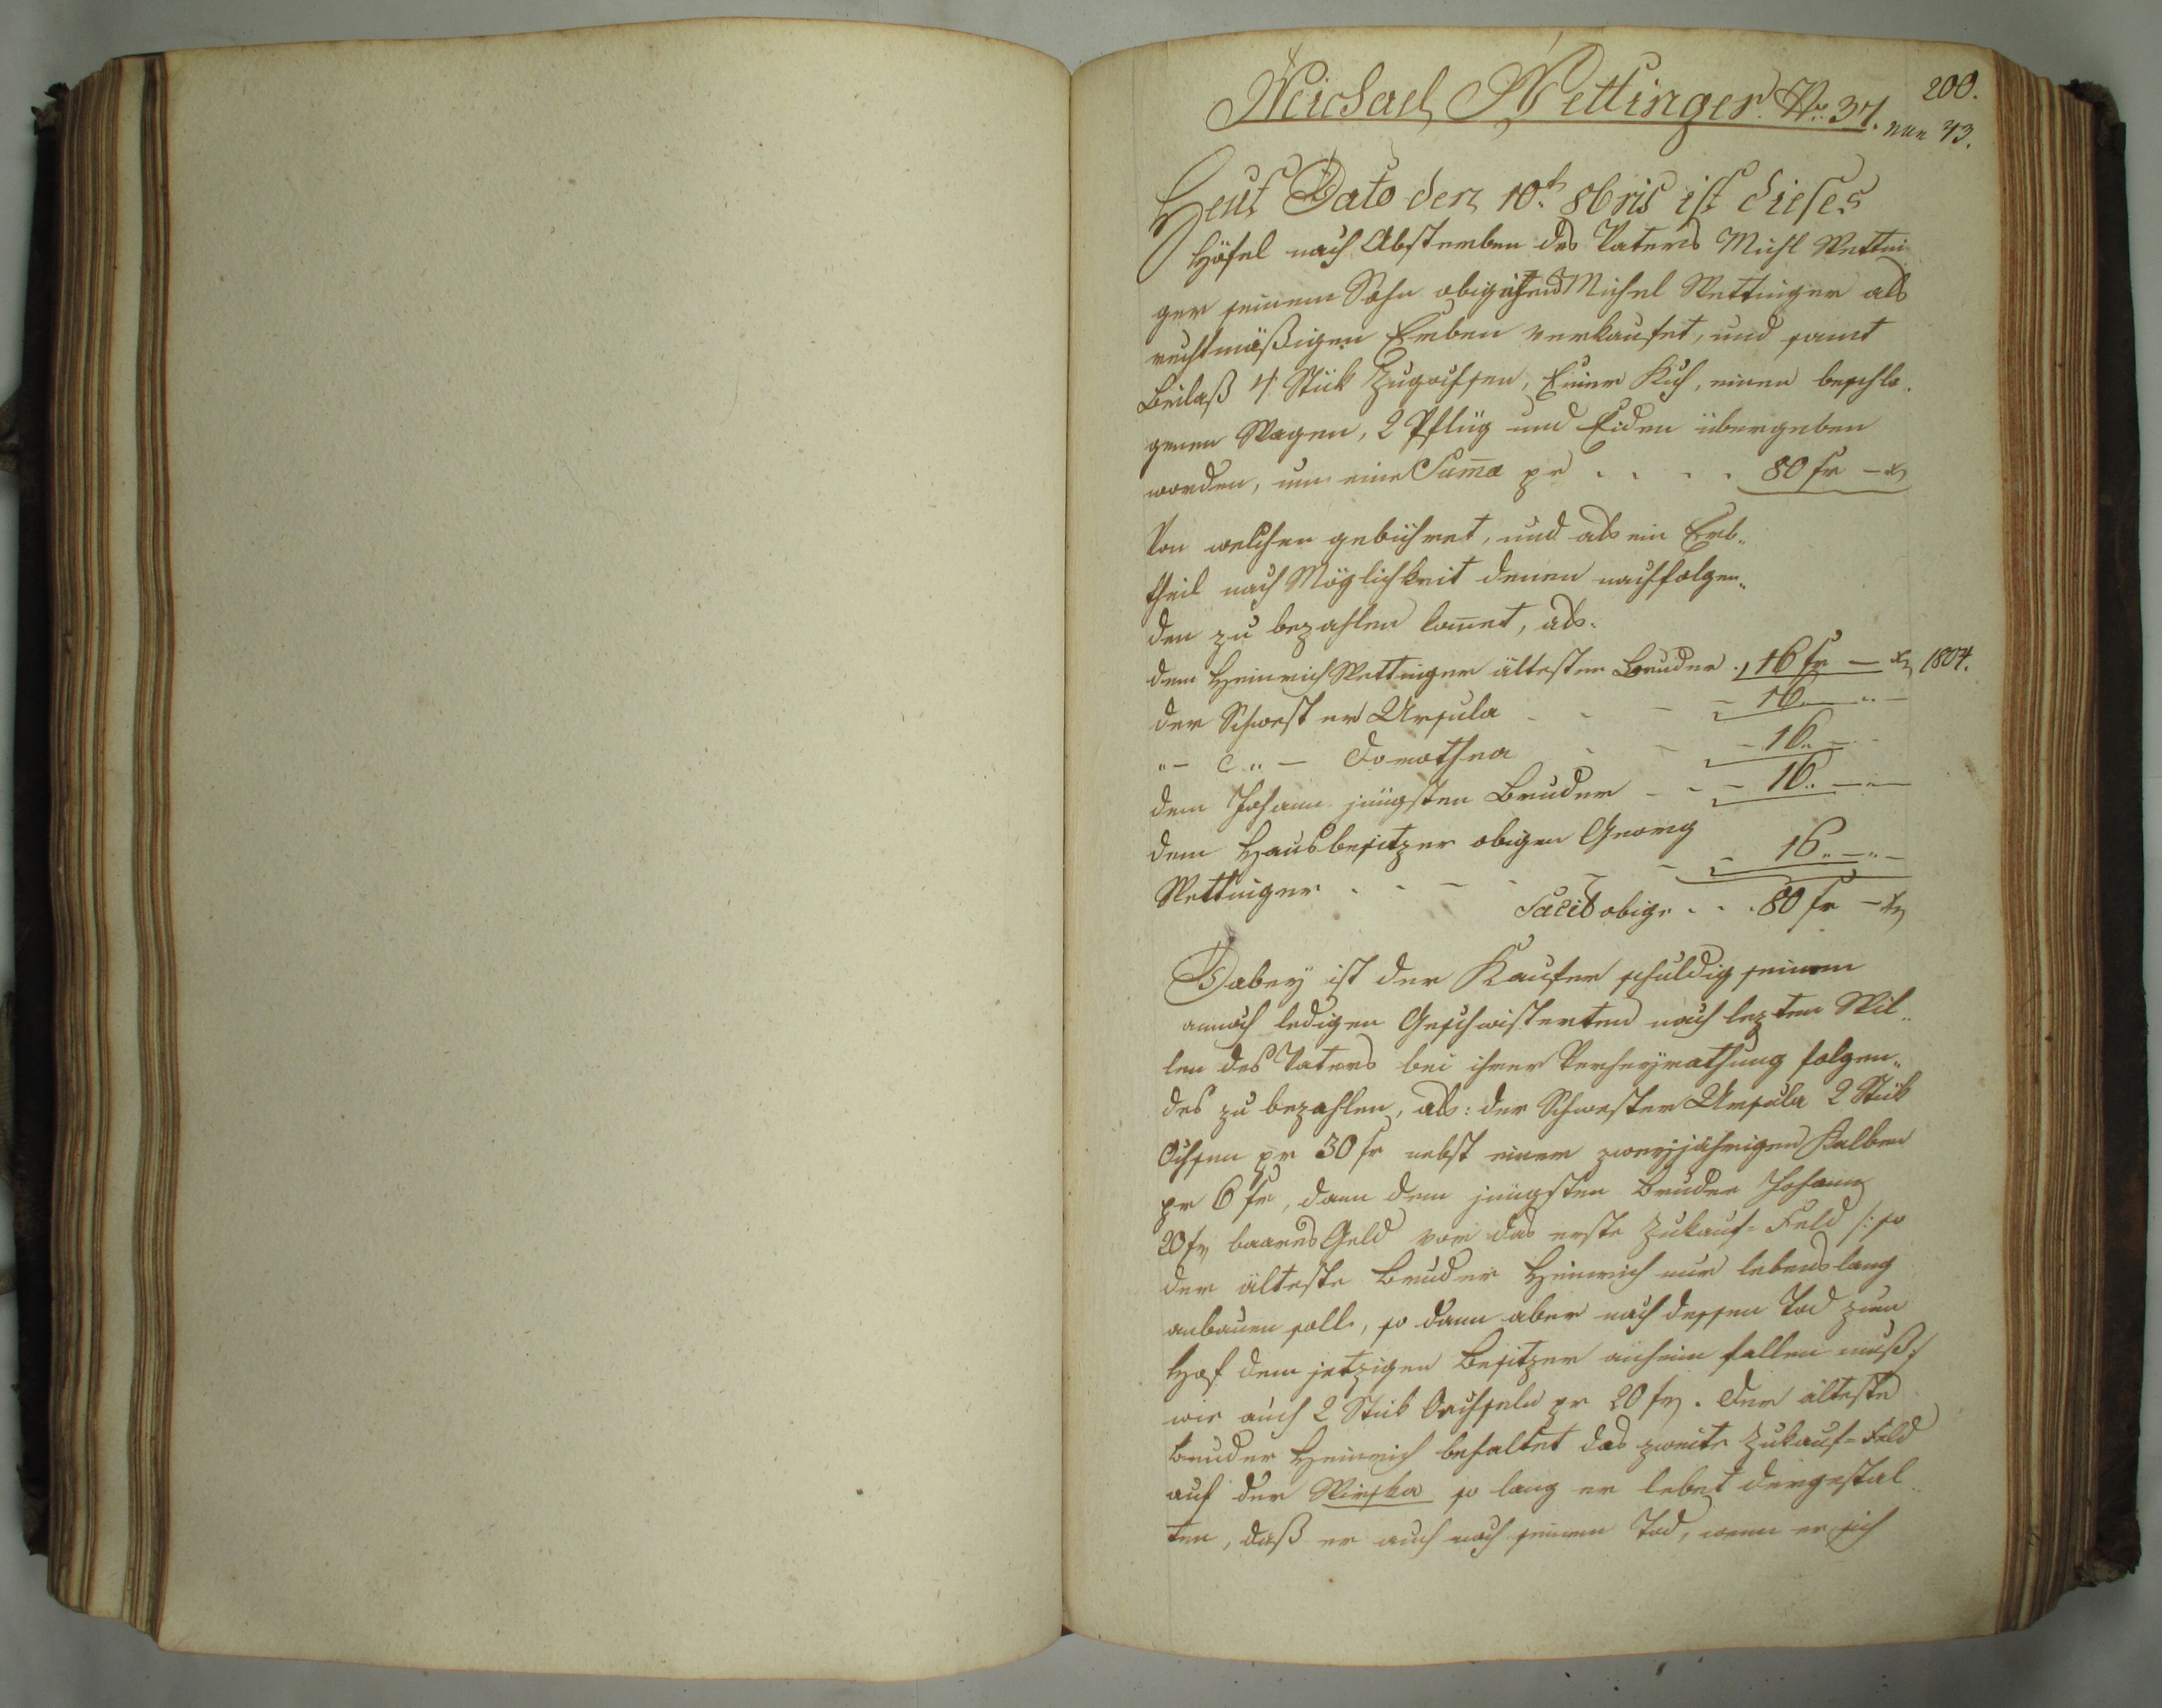 200.
Michael Wettinger. Nr. 37. nun 43.
Heut Dato den 10t 8bris ist dieses
Höfel nach Absterben des Vaters Michl Wettin
ger seinem Sohn Michel Wettinger als
rechtmäßigen Erben verkaufet, und samt
Beilaß 4 Stük Zugochsen, Einer Kuh, einen beschla„
genen Wagen, 2 Pflüg und Eiden übergeben
worden, um eine Suma pr . . . . 80 fr – x
Von welchen gebühret, und als ein Erb„
theil nach Möglichkeit denen nachfolgen„
den zu bezahlen komet, als.
dem Heinrich Wettinger ältesten Bruder . 16 fr – x 1804.
der Schwester Ursula - - - - 16 „ –
„ – „ – Dorothea - - - 16 „ –
dem Johann jüngsten Bruder - - - 16 „ –
dem Hausbesitzer obigen Georg
Wettinger . . - - - - 16 „ – „ –
Facit obige . . . 80 fr – x
Dabey ist der Kaufer schuldig seinem
annoch ledigen Geschwisterten nach lezten Wil„
len des Vaters bei ihrer Verheyrathung folgen„
des zu bezahlen, als: der Schwester Ursula 2 Stük
Ochsen pr 30 fr nebst einem zweyjährigen Kalben
pr 6 fr, dann dem jüngsten Bruder Johann
20 fr baares Geld vor das erste Zukauf=Feld /: so
der älteste Bruder Heinrich nur lebenslang
anbauen solle, so dann aber nach dessen Tod zum
Hof dem jetzigen Besitzer anheim fallen muß :/
wie auch 2 Stük Ochseln pr 20 fr. Der älteste
Bruder Heinrich behaltet das zweite Zukauf=Feld
auf der so lang er lebet dergestal„
ten, daß er auch nach seinem Tod, wenn er sich